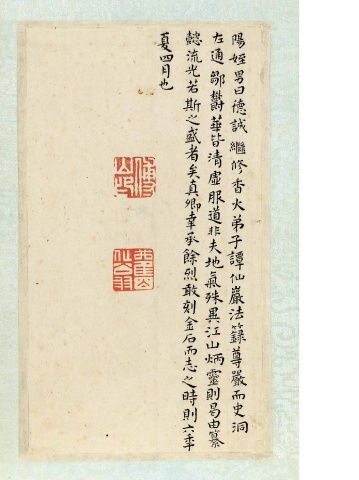 陽姪男曰德誠繼修香火弟子譚仙巖法籙尊嚴而史洞
左通鄒鬱華皆清虛服道非夫地氣殊異江山炳靈則曷由纂
懿流光若斯之盛者矣真卿幸承餘烈敢刻金石而志之時則六年
夏四月也
傅山印